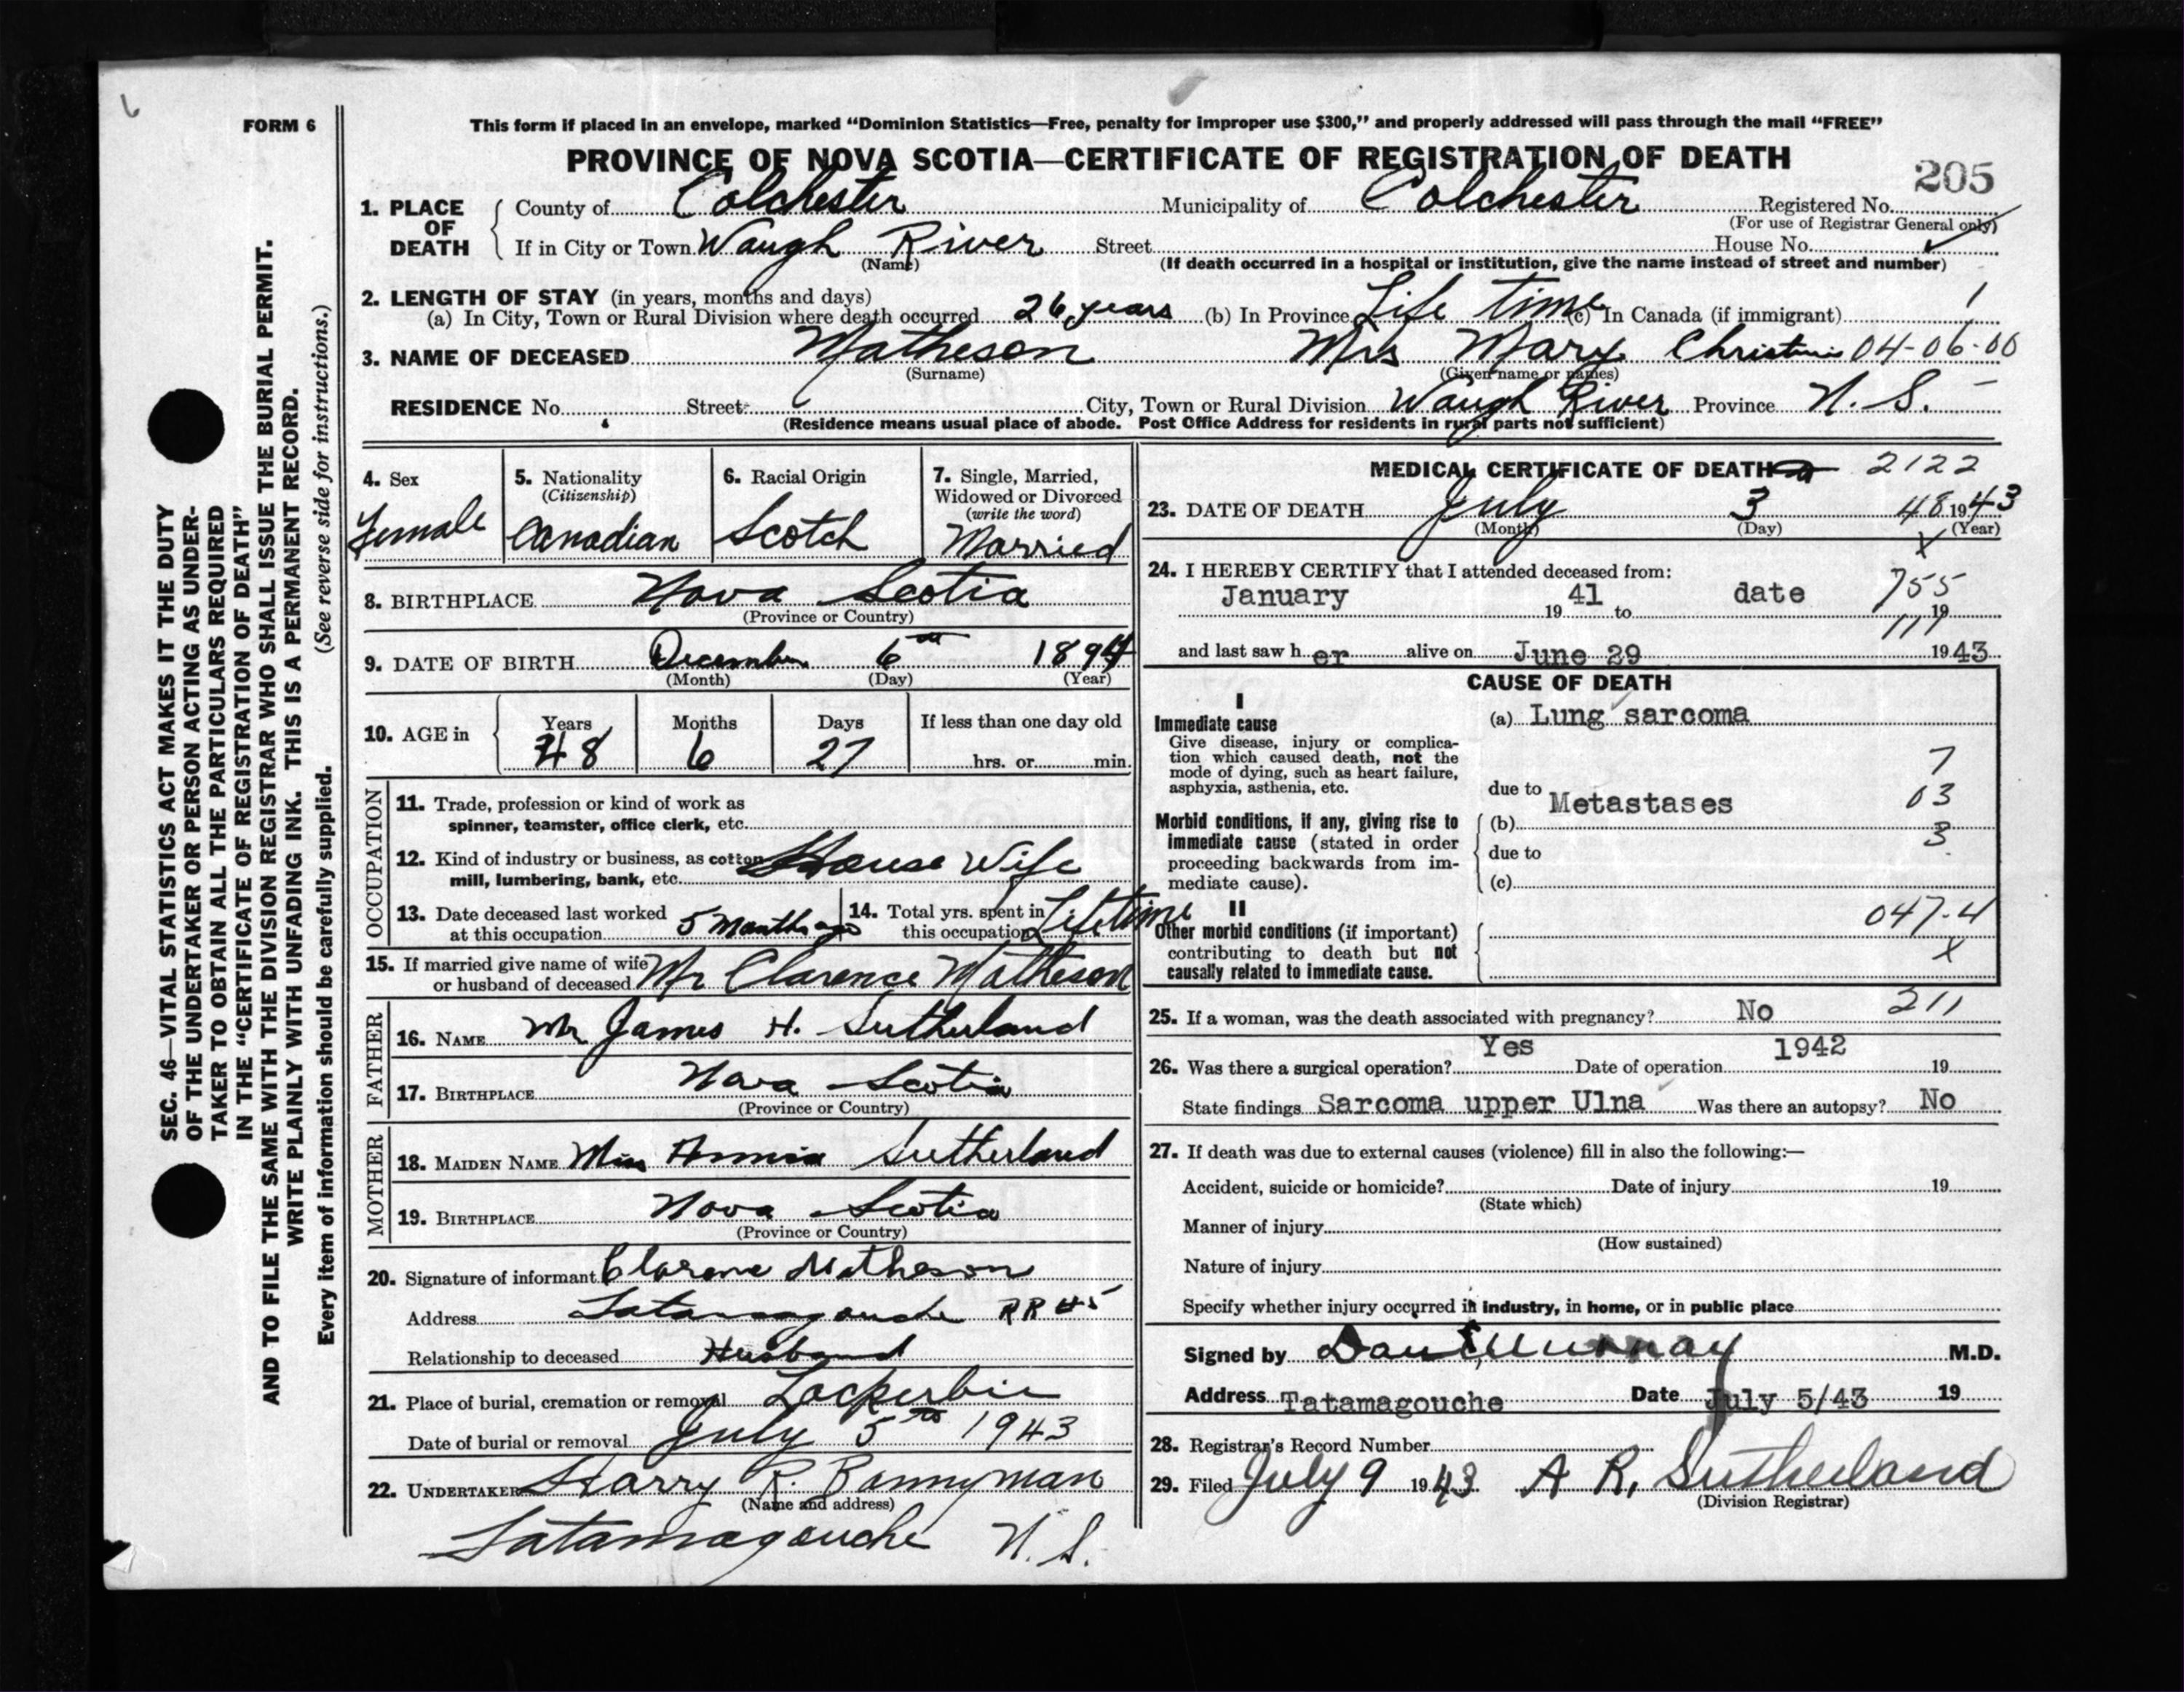 FORM 6
This form if placed in an envelope, marked "Dominion Statistics—Free, penalty for improper use $300," and properly addressed will pass through the mail "FREE"
PROVINCE OF NOVA SCOTIA—CERTIFICATE OF REGISTRATION OF DEATH
205
1. PLACE OF DEATH County of Colchester Municipality of Colchester Registered No.
(For use of Registrar General only)
If in City or Town Waugh River Street House No.
(Name) (If death occurred in a hospital or institution, give the name instead of street and number)
2. LENGTH OF STAY (in years, months and days)
(a) In City, Town or Rural Division where death occurred 26 years (b) In Province Life time (c) In Canada (if immigrant)
3. NAME OF DECEASED Matheson Mrs Mary Christinie 04-06-00
(Surname) (Given name or names)
RESIDENCE No. Street City, Town or Rural Division Waugh River Province N. S.
(Residence means usual place of abode. Post Office Address for residents in rural parts not sufficient)
4. Sex Female
5. Nationality (Citizenship) Canadian
6. Racial Origin Scotch
7. Single, Married, Widowed or Divorced (write the word) Married
8. BIRTHPLACE Nova Scotia
(Province or Country)
9. DATE OF BIRTH December 6th 1894
(Month) (Day) (Year)
10. AGE in Years 48 Months 6 Days 27 If less than one day old hrs. or min.
OCCUPATION
11. Trade, profession or kind of work as spinner, teamster, office clerk, etc.
12. Kind of industry or business, as cotton mill, lumbering, bank, etc. House Wife
13. Date deceased last worked at this occupation 5 Months ago
14. Total yrs. spent in this occupation Lifetime
15. If married give name of wife or husband of deceased Mr Clarence Matheson
FATHER
16. NAME Mr James H. Sutherland
17. BIRTHPLACE Nova Scotia
(Province or Country)
MOTHER
18. MAIDEN NAME Miss Annie Sutherland
19. BIRTHPLACE Nova Scotia
(Province or Country)
20. Signature of informant Clarence Matheson
Address Tatamagouche RR #5
Relationship to deceased Husband
21. Place of burial, cremation or removal Lockerbie
Date of burial or removal July 5th 1943
22. UNDERTAKER Harry R. Bonnyman
(Name and address)
Tatamagouche N. S.
MEDICAL CERTIFICATE OF DEATH 2122
23. DATE OF DEATH July 3 48 1943
(Month) (Day) (Year)
X
24. I HEREBY CERTIFY that I attended deceased from:
January 19 41 to date 19
755
111
and last saw her alive on June 29 1943
CAUSE OF DEATH
I
Immediate cause
Give disease, injury or complication which caused death, not the mode of dying, such as heart failure, asphyxia, asthenia, etc.
(a) Lung sarcoma
due to Metastases
7
03
3
Morbid conditions, if any, giving rise to immediate cause (stated in order proceeding backwards from immediate cause).
(b)
due to
(c)
II
Other morbid conditions (if important) contributing to death but not causally related to immediate cause.
047-4
X
25. If a woman, was the death associated with pregnancy? No 211
26. Was there a surgical operation? Yes Date of operation 1942 19
State findings Sarcoma upper Ulna Was there an autopsy? No
27. If death was due to external causes (violence) fill in also the following:—
Accident, suicide or homicide? Date of injury 19
(State which)
Manner of injury
(How sustained)
Nature of injury
Specify whether injury occurred in industry, in home, or in public place
Signed by Dan Murray M.D.
Address Tatamagouche Date July 5/43 19
28. Registrar's Record Number
29. Filed July 9 1943 A R, Sutherland
(Division Registrar)
SEC. 46—VITAL STATISTICS ACT MAKES IT THE DUTY
OF THE UNDERTAKER OR PERSON ACTING AS UNDER-
TAKER TO OBTAIN ALL THE PARTICULARS REQUIRED
IN THE "CERTIFICATE OF REGISTRATION OF DEATH"
AND TO FILE THE SAME WITH THE DIVISION REGISTRAR WHO SHALL ISSUE THE BURIAL PERMIT.
WRITE PLAINLY WITH UNFADING INK. THIS IS A PERMANENT RECORD.
Every item of information should be carefully supplied. (See reverse side for instructions.)